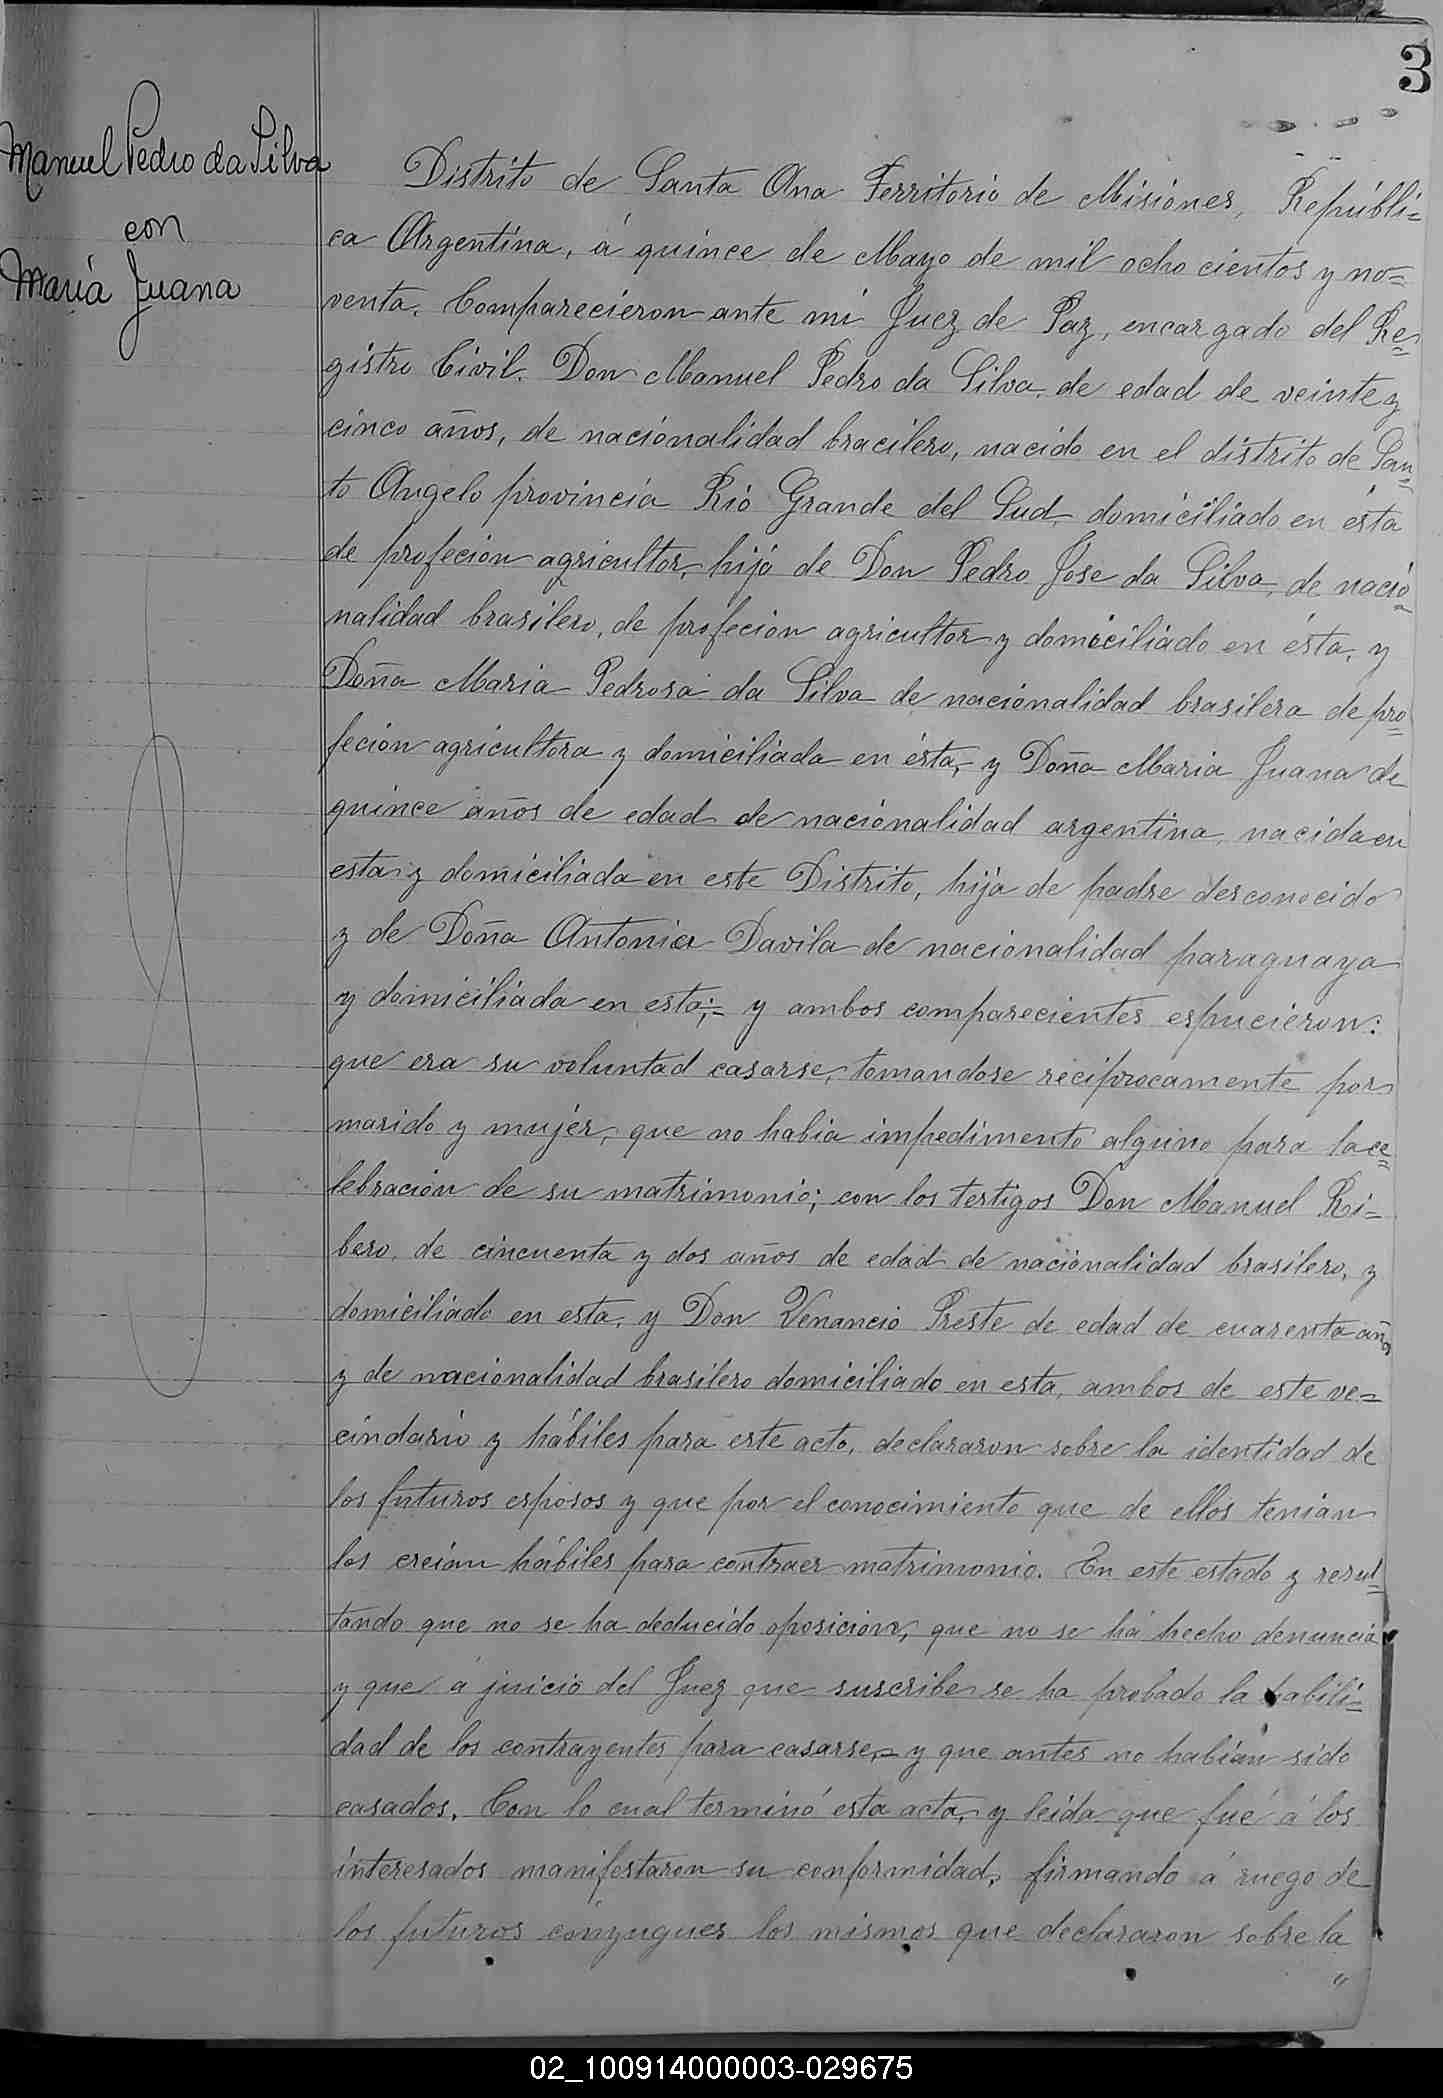 3
Manuel Pedro da Silva
con
María Juana
Distrito de Santa Ana Territorio de Misiónes, Repúbli=
ca Argentina, á quince de Mayo de mil ocho cientos y no=
venta. Comparecieron ante mi Juez de Paz, encargado del Re=
gistro Civil. Don Manuel Pedro da Silva, de edad de veinte y
cinco años, de nacionalidad bracilero, nacido en el distrito de San=
to Angelo provincia Rio Grande del Sud, domiciliado en ésta
de profeción agricultor, hijo de Don Pedro Jose da Silva, de nacio=
nalidad brasilero, de profeción agricultor y domiciliado en ésta, y
Doña Maria Pedrosa da Silva de nacionalidad brasilera de pro=
feción agricultora y domiciliada en ésta,- y Doña Maria Juana de
quince años de edad de nacionalidad argentina, nacida en
esta y domiciliada en este Distrito, hija de padre desconocido
y de Doña Antonia Davila de nacionalidad paraguaya
y domiciliada en esta;= y ambos comparecientes espucieron:
que era su voluntad casarse, tomandose reciprocamente por
marido y mujer, que no habia impedimento alguno para la ce=
lebración de su matrimonio; con los testigos Don Manuel Ri=
bero, de cincuenta y dos años de edad de nacionalidad brasilero, y
domiciliado en esta, y Don Venancio Preste de edad de cuarenta años
y de nacionalidad brasilero domiciliado en esta, ambos de este ve=
cindario y hábiles para este acto, declararon sobre la identidad de
los futuros esposos y que por el conocimiento que de ellos tenian
los creian hábiles para contraer matrimonio. En este estado y resul=
tando que no se ha deducido oposición, que no se ha hecho denuncia
y que á juicio del Juez que suscribe se ha probado la habili=
dad de los contrayentes para casarse,= y que antes no habian sido
casados. Con lo cual terminó esta acta, y leida que fué á los
interesados manifestaron su conformidad, firmando á ruego de
los futuros cónyugues los mismos que declararon sobre la
"
02_100914000003-029675